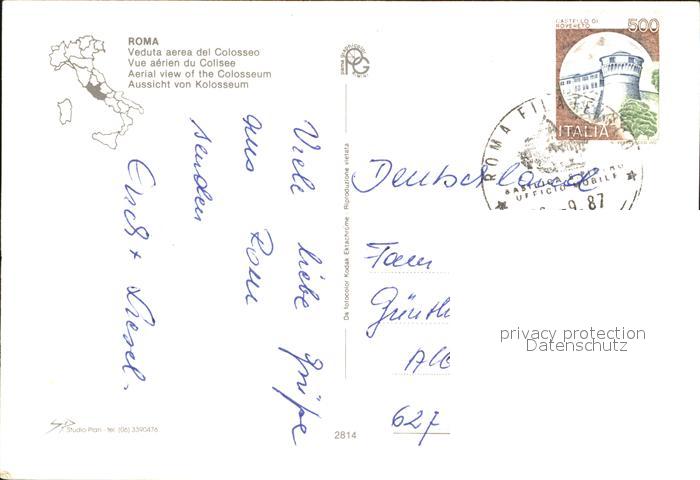 ROMA
Veduta aerea del Colosseo
Vue aérien du Colisee
Aerial view of the Colosseum
Aussicht von Kolosseum
CASTELLO DI
ROVERETO
500
ITALIA
ROMA
UFFICIO MOBILE
9.87
Viele liebe Grüße
aus Rom
senden
Erich + Liesel.
Da fotocolor Kodak Ektachrome Riproduzione vietata
Deutschland
Fam
Günth
627
privacy protection
Datenschutz
Studio Plan - tel. (06) 3390476
2814